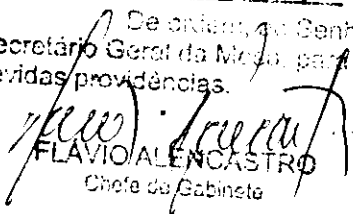 De ordem, ao Senh
ecretário Geral da Mesa, para
evidas providências.
FLÁVIO ALENCASTRO
Chefe de Gabinete